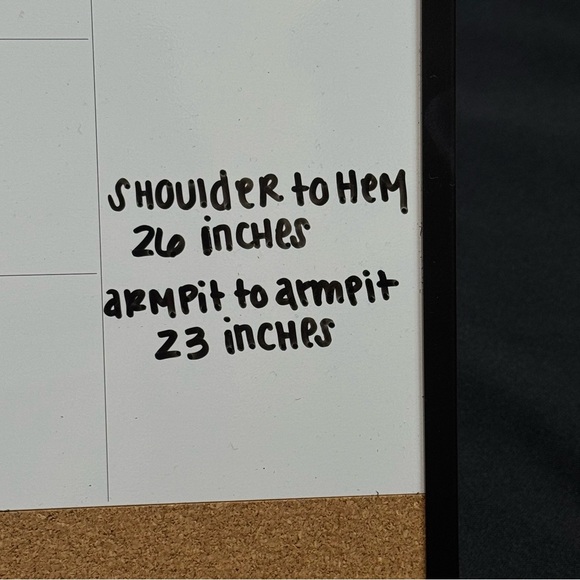 SHOUldeR to HeM
26 incHes
aRMPit to armpit
23 incHes